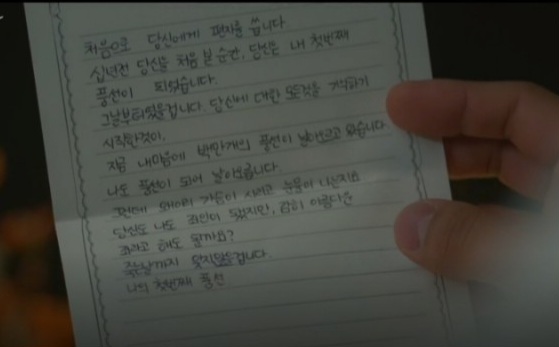 처음으로 당신에게 편지를 씁니다
십년전 당신을 처음 본 순간, 당신은 내 첫번째
풍선이 되었습니다.
그날부터였을겁니다. 당신에 대한 모든것을 기억하기
시작한것이.
지금 내마음에 백만개의 풍선이 날아오르고 있습니다
나도 풍선이 되어 날아오릅니다.
그런데 왜이리 가슴이 시리고 눈물이 나는지요
당신도 나도 죄인이 됐지만, 감히 아름다운
죄라고 해도 될까요?
죽는날까지 잊지않을겁니다.
나의 첫번째 풍선